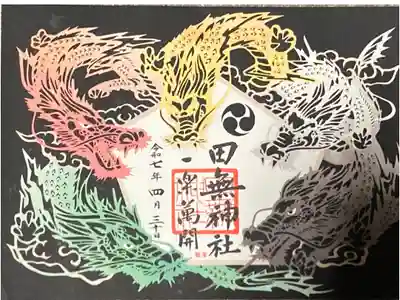 田無神社
一粟萬開
令和七年 四月 三十日